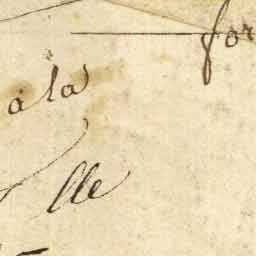 for
à la
lle